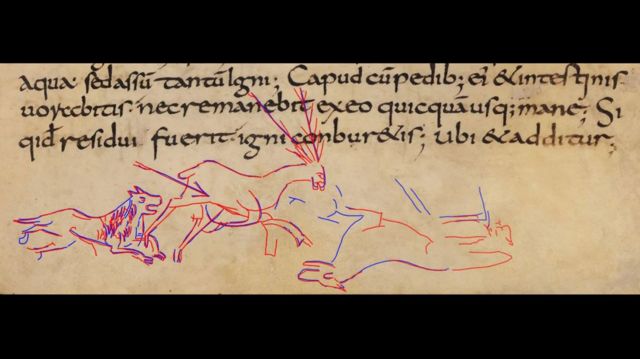 aquae sedassū tantū Igni; Capud cū pedib; ei &intestinis
uoratis nec remanebit exeo quicquā usq; mane; Si
qid residui fuerit igni conbur&is; Ubi &additur;